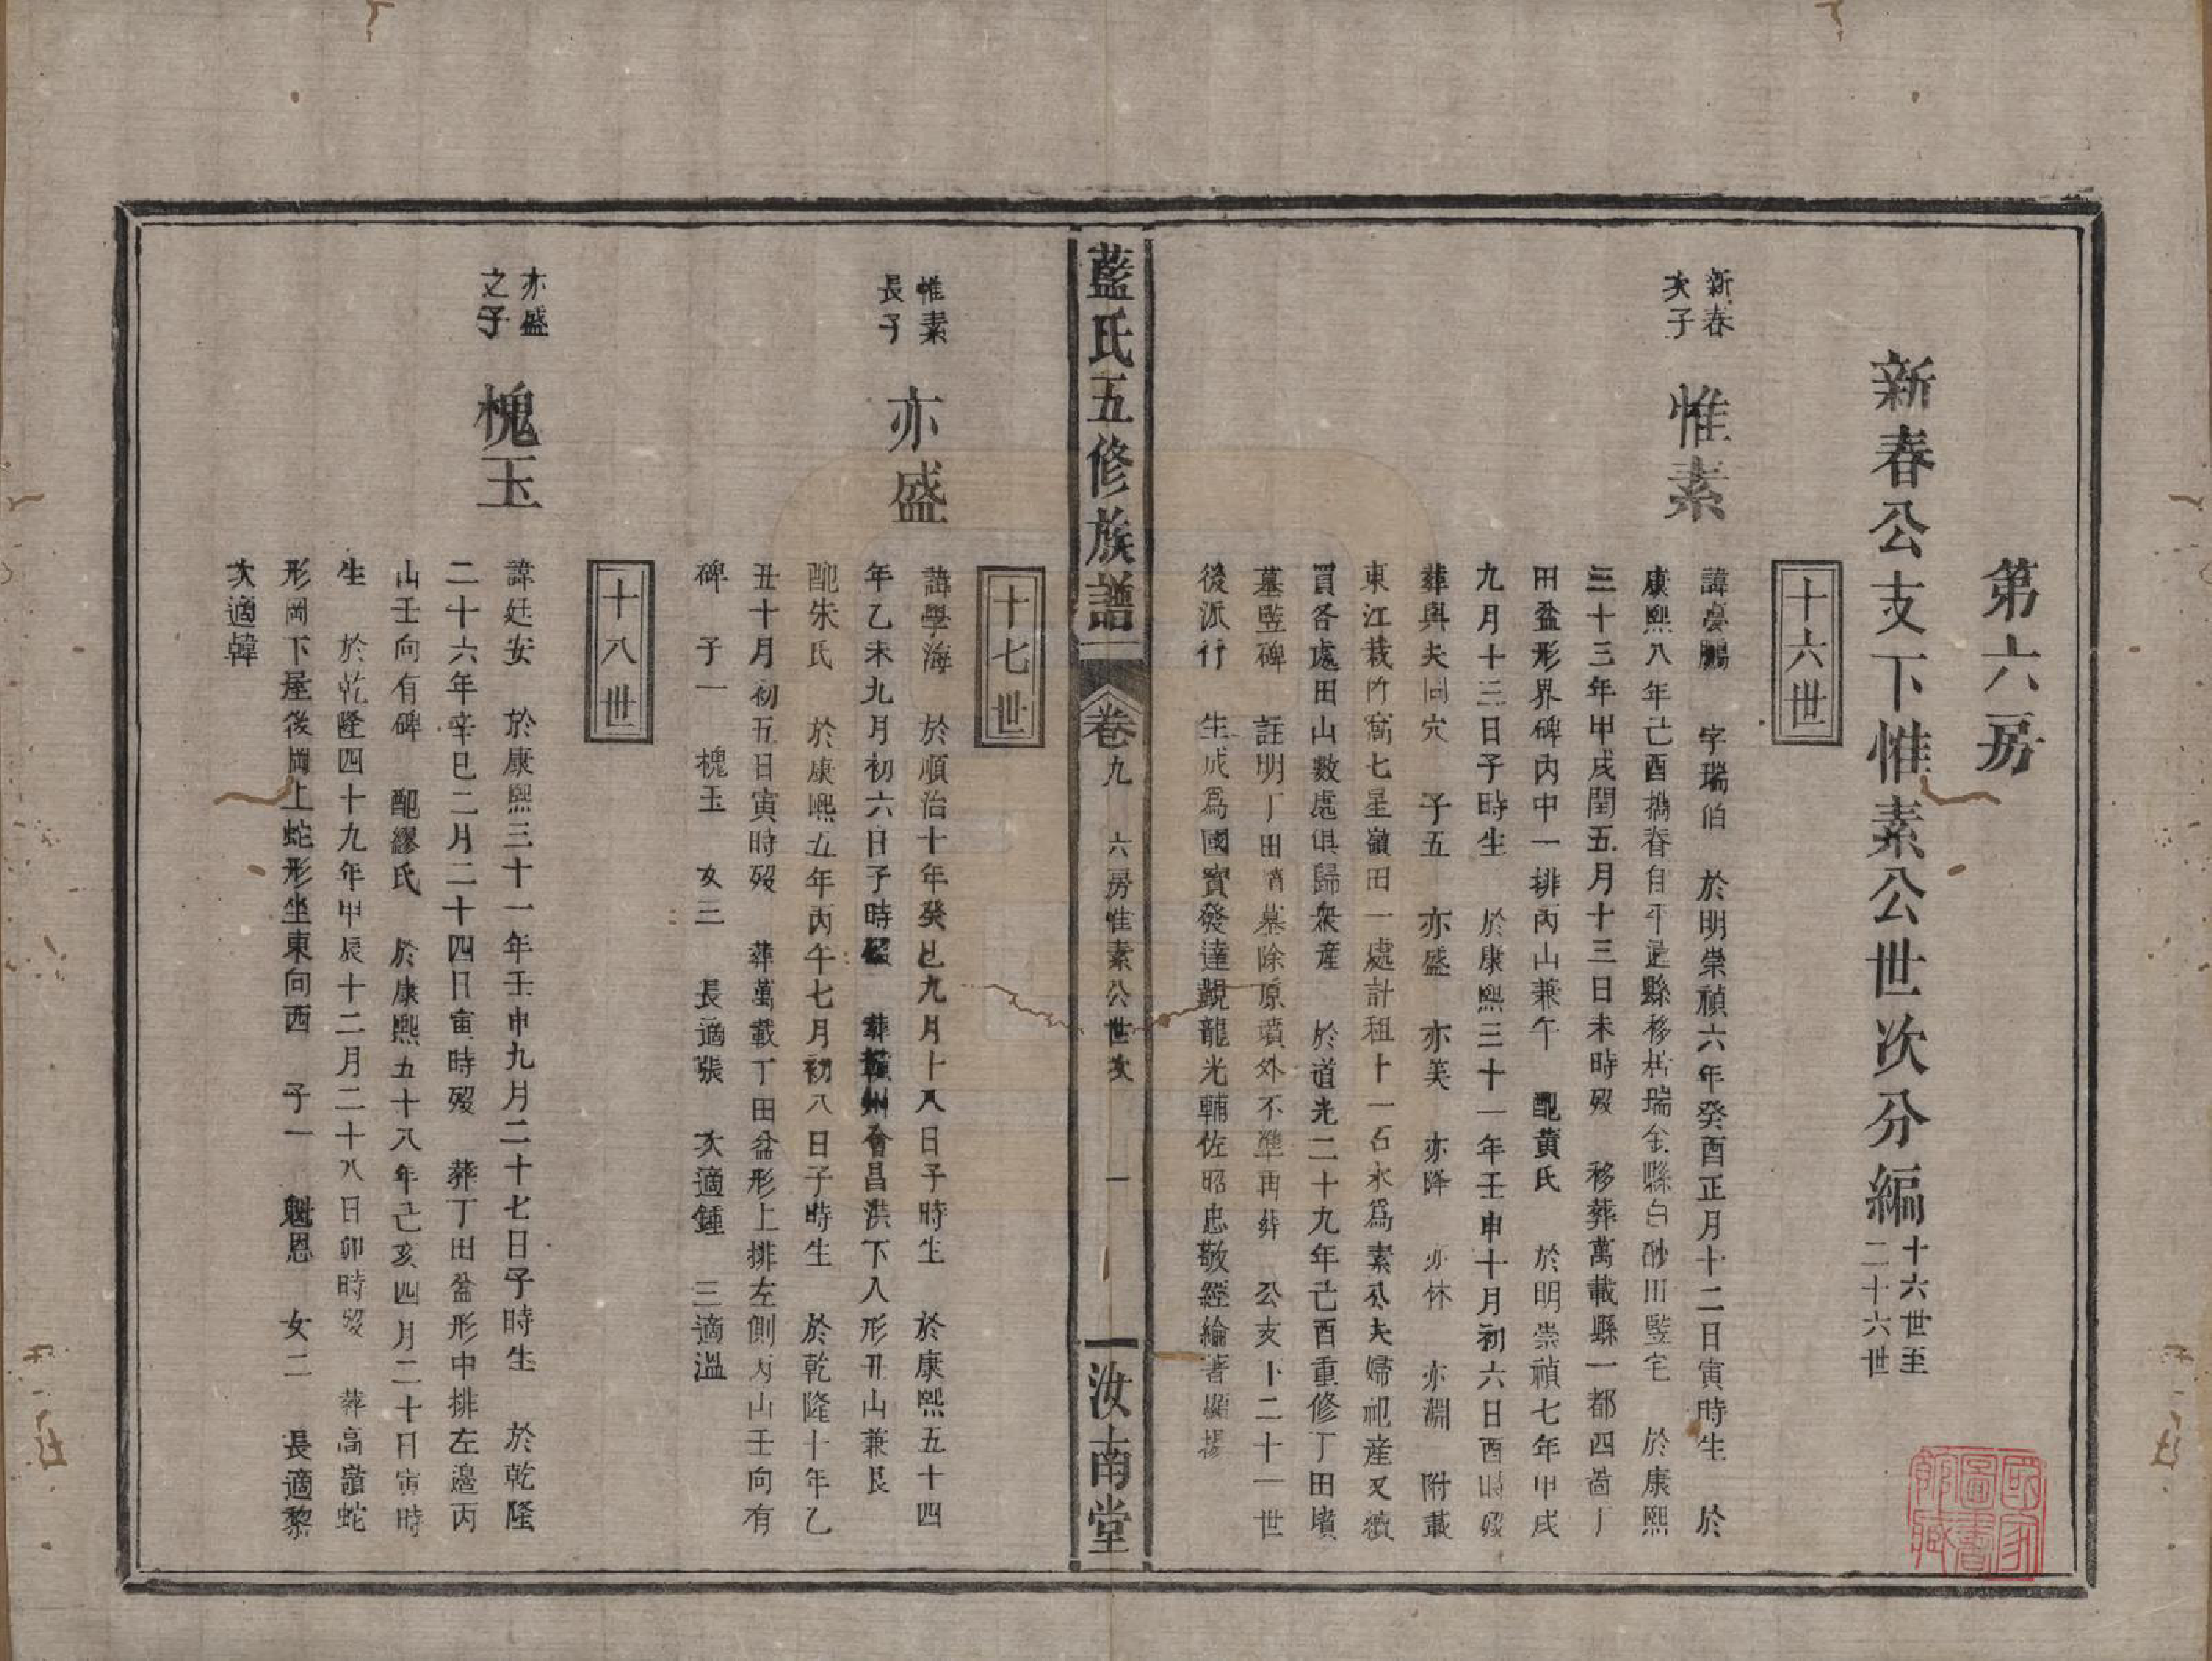 第六房
新春公支下惟素公世次分編十六世至二十六世
十六世
新春次子
惟素
諱夢鵬 字瑞伯 於明崇禎六年癸酉正月十二日寅時生 於
康熙八年己酉攜眷自平遠縣移居瑞金縣白砂川豎宅 於康熙
三十三年甲戌閏五月十三日未時歿 移葬萬載縣一都四啚丁
田盆形界碑內中一排丙山兼午 配黃氏 於明崇禎七年甲戌
九月十三日子時生 於康熙三十一年壬申十月初六日酉時歿
葬與夫同穴 子五 亦盛 亦美 亦降 亦林 亦淵 附載
東江栽竹窩七星嶺田一處計租十一石永爲素公夫婦祀産又續
買各處田山數處俱歸衆産 於道光二十九年己酉重修丁田墳
墓豎碑 註明丁田 墓除原墳外不準再葬 公支下二十一世
後派行 生成爲國寶發達觀龍光輔佐昭忠敬經綸著顯揚
藍氏五修族譜
卷九 六房惟素公世次 一
汝南堂
十七世
惟素長子
亦盛
諱學海 於順治十年癸巳九月十八日子時生 於康熙五十四
年乙未九月初六日子時歿 葬贛州會昌洪下人形丑山兼艮
配朱氏 於康熙五年丙午七月初八日子時生 於乾隆十年乙
丑十月初五日寅時歿 葬萬載丁田盆形上排左側丙山壬向有
碑 子一 槐玉 女三 長適張 次適鍾 三適溫
十八世
亦盛之子
槐玉
諱廷安 於康熙三十一年壬申九月二十七日子時生 於乾隆
二十六年辛巳二月二十四日寅時歿 葬丁田盆形中排左邉丙
山壬向有碑 配繆氏 於康熙五十八年己亥四月二十日寅時
生 於乾隆四十九年甲辰十二月二十八日卯時歿 葬高嶺蛇
形岡下屋後崗上蛇形坐東向西 子一 魁恩 女二 長適黎
次適韓
國家圖書館藏